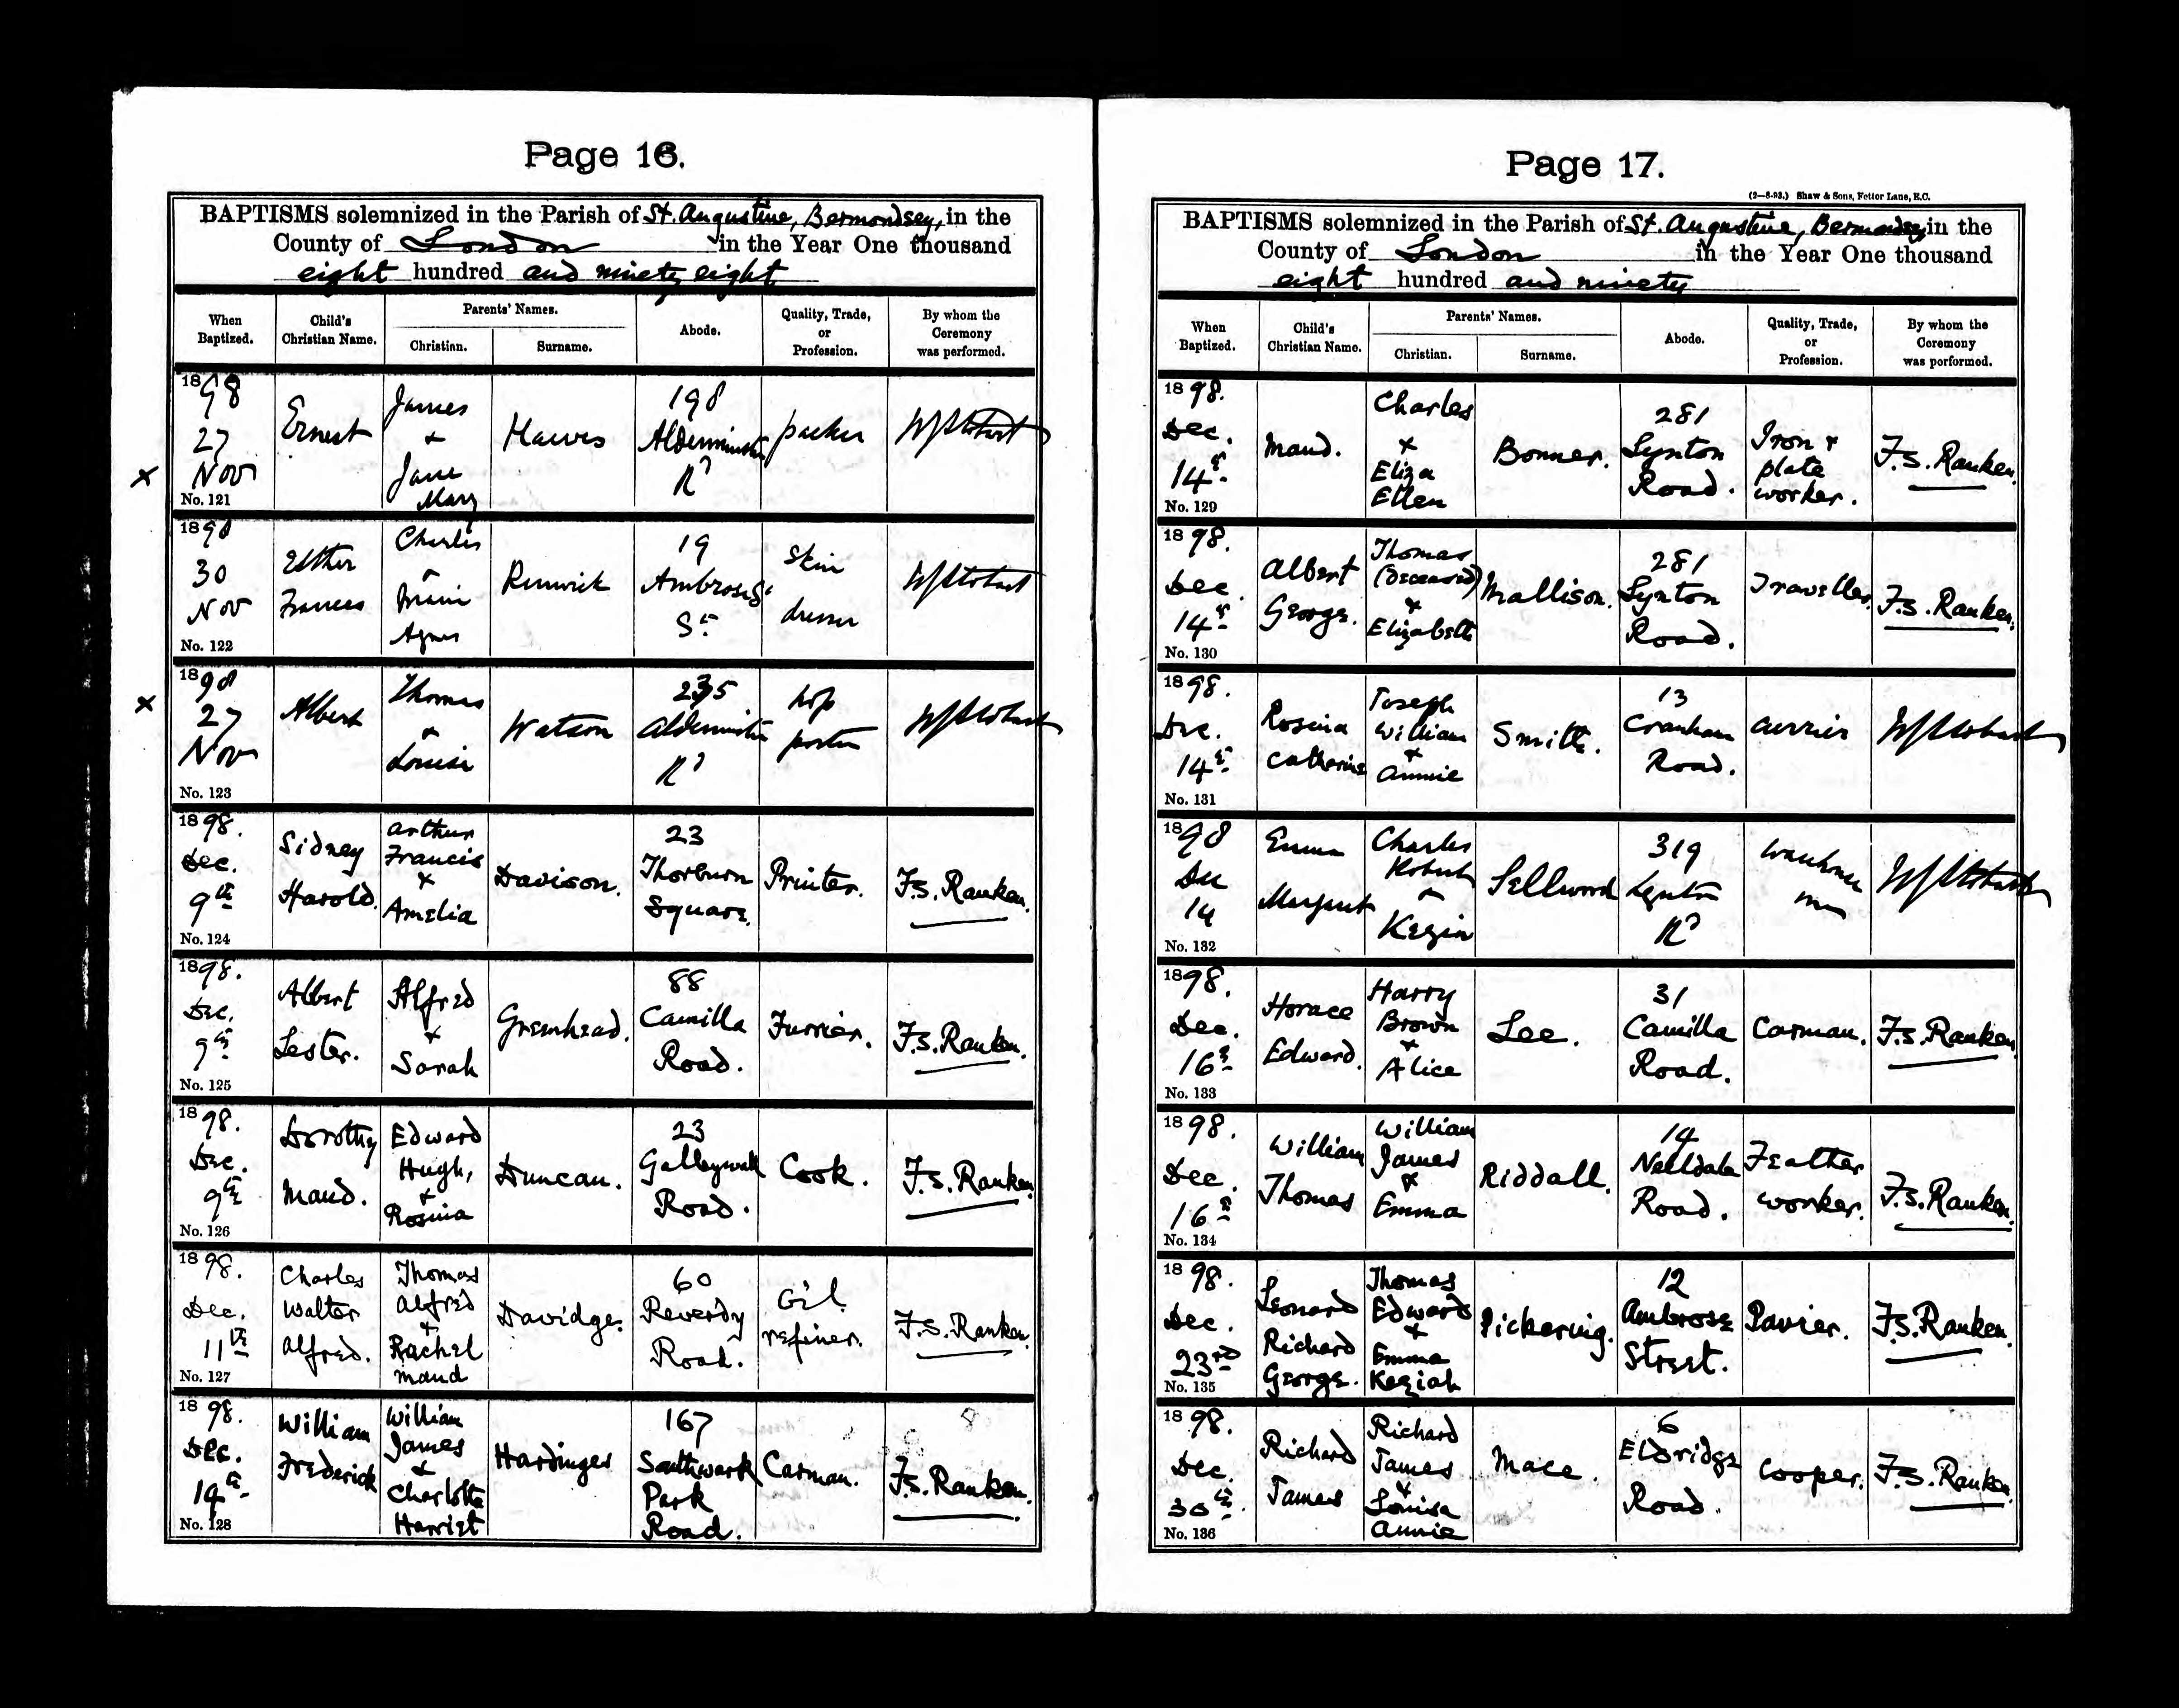 Page 16.
BAPTISMS solemnized in the Parish of St. Augustine, Bermondsey, in the
County of London in the Year One thousand
eight hundred and ninety eight
When Baptized. Child's Christian Name. Parents' Names. Abode. Quality, Trade, or Profession. By whom the Ceremony was performed.
Christian. Surname.
1898
27
Nov
No. 121
Ernest
James
+
Jane
Mary
Hawes
198
Alderminster
Rd
packer
x
1898
30
Nov
No. 122
Esther
Frances
Charles
+
Agnes
Renwick
19
Ambrose
St
Skin
dresser
1898
27
Nov
No. 123
Albert
Thomas
+
Louisa
Watson
235
Alderminster
Rd
hop
porter
x
1898.
Dec.
9th
No. 124
Sidney
Harold.
Arthur
Francis
+
Amelia
Davison.
23
Thorburn
Square.
Printer.
F.S. Ranken.
1898.
Dec.
9th
No. 125
Albert
Lester.
Alfred
+
Sarah
Greenhead.
88
Camilla
Road.
Furrier.
F.S. Ranken.
1898.
Dec.
9th
No. 126
Dorothy
Maud.
Edward
Hugh,
+
Rosina
Duncan.
23
Galleywall
Road.
Cook.
F.S. Ranken.
1898.
Dec.
11th
No. 127
Charles
Walter
Alfred.
Thomas
Alfred
+
Rachel
Maud
Davidge.
60
Reverdy
Road.
Oil
refiner.
F.S. Ranken.
1898.
Dec.
14th
No. 128
William
Frederick
William
James
+
Charlotte
Harriet
Hardinges
167
Southwark
Park
Road.
Carman.
F.S. Ranken.
Page 17.
(2—8-93.) Shaw & Sons, Fetter Lane, E.C.
BAPTISMS solemnized in the Parish of St. Augustine, Bermondsey, in the
County of London in the Year One thousand
eight hundred and ninety
When Baptized. Child's Christian Name. Parents' Names. Abode. Quality, Trade, or Profession. By whom the Ceremony was performed.
Christian. Surname.
1898.
Dec.
14th
No. 129
Maud.
Charles
+
Eliza
Ellen
Bonner.
281
Lynton
Road.
Iron +
plate
worker.
F.S. Ranken.
1898.
Dec.
14th
No. 130
Albert
George.
Thomas
(Deceased)
+
Elizabeth
Mallison.
281
Lynton
Road.
Traveller.
F.S. Ranken.
1898.
Dec.
14th
No. 131
Rosina
Catherine
Joseph
William
+
Annie
Smith.
13
Cranham
Road.
Currier
1898
Dec
14
No. 132
Emma
Margaret
Charles
Robert
+
Kezia
Sellwood
319
Lynton
Rd
Warehouse
man
1898.
Dec.
16th
No. 133
Horace
Edward.
Harry
Brown
+
Alice
Lee.
31
Camilla
Road.
Carman.
F.S. Ranken.
1898.
Dec.
16th
No. 134
William
Thomas
William
James
+
Emma
Riddall.
14
Nelldale
Road.
Feather
worker.
F.S. Ranken.
1898.
Dec.
23rd
No. 135
Leonard
Richard
George.
Thomas
Edward
+
Emma
Keziah
Pickering.
12
Ambrose
Street.
Pavier.
F.S. Ranken.
1898.
Dec.
30th
No. 136
Richard
James
Richard
James
+
Louisa
Annie
Mace.
6
Eldridge
Road.
Cooper.
F.S. Ranken.